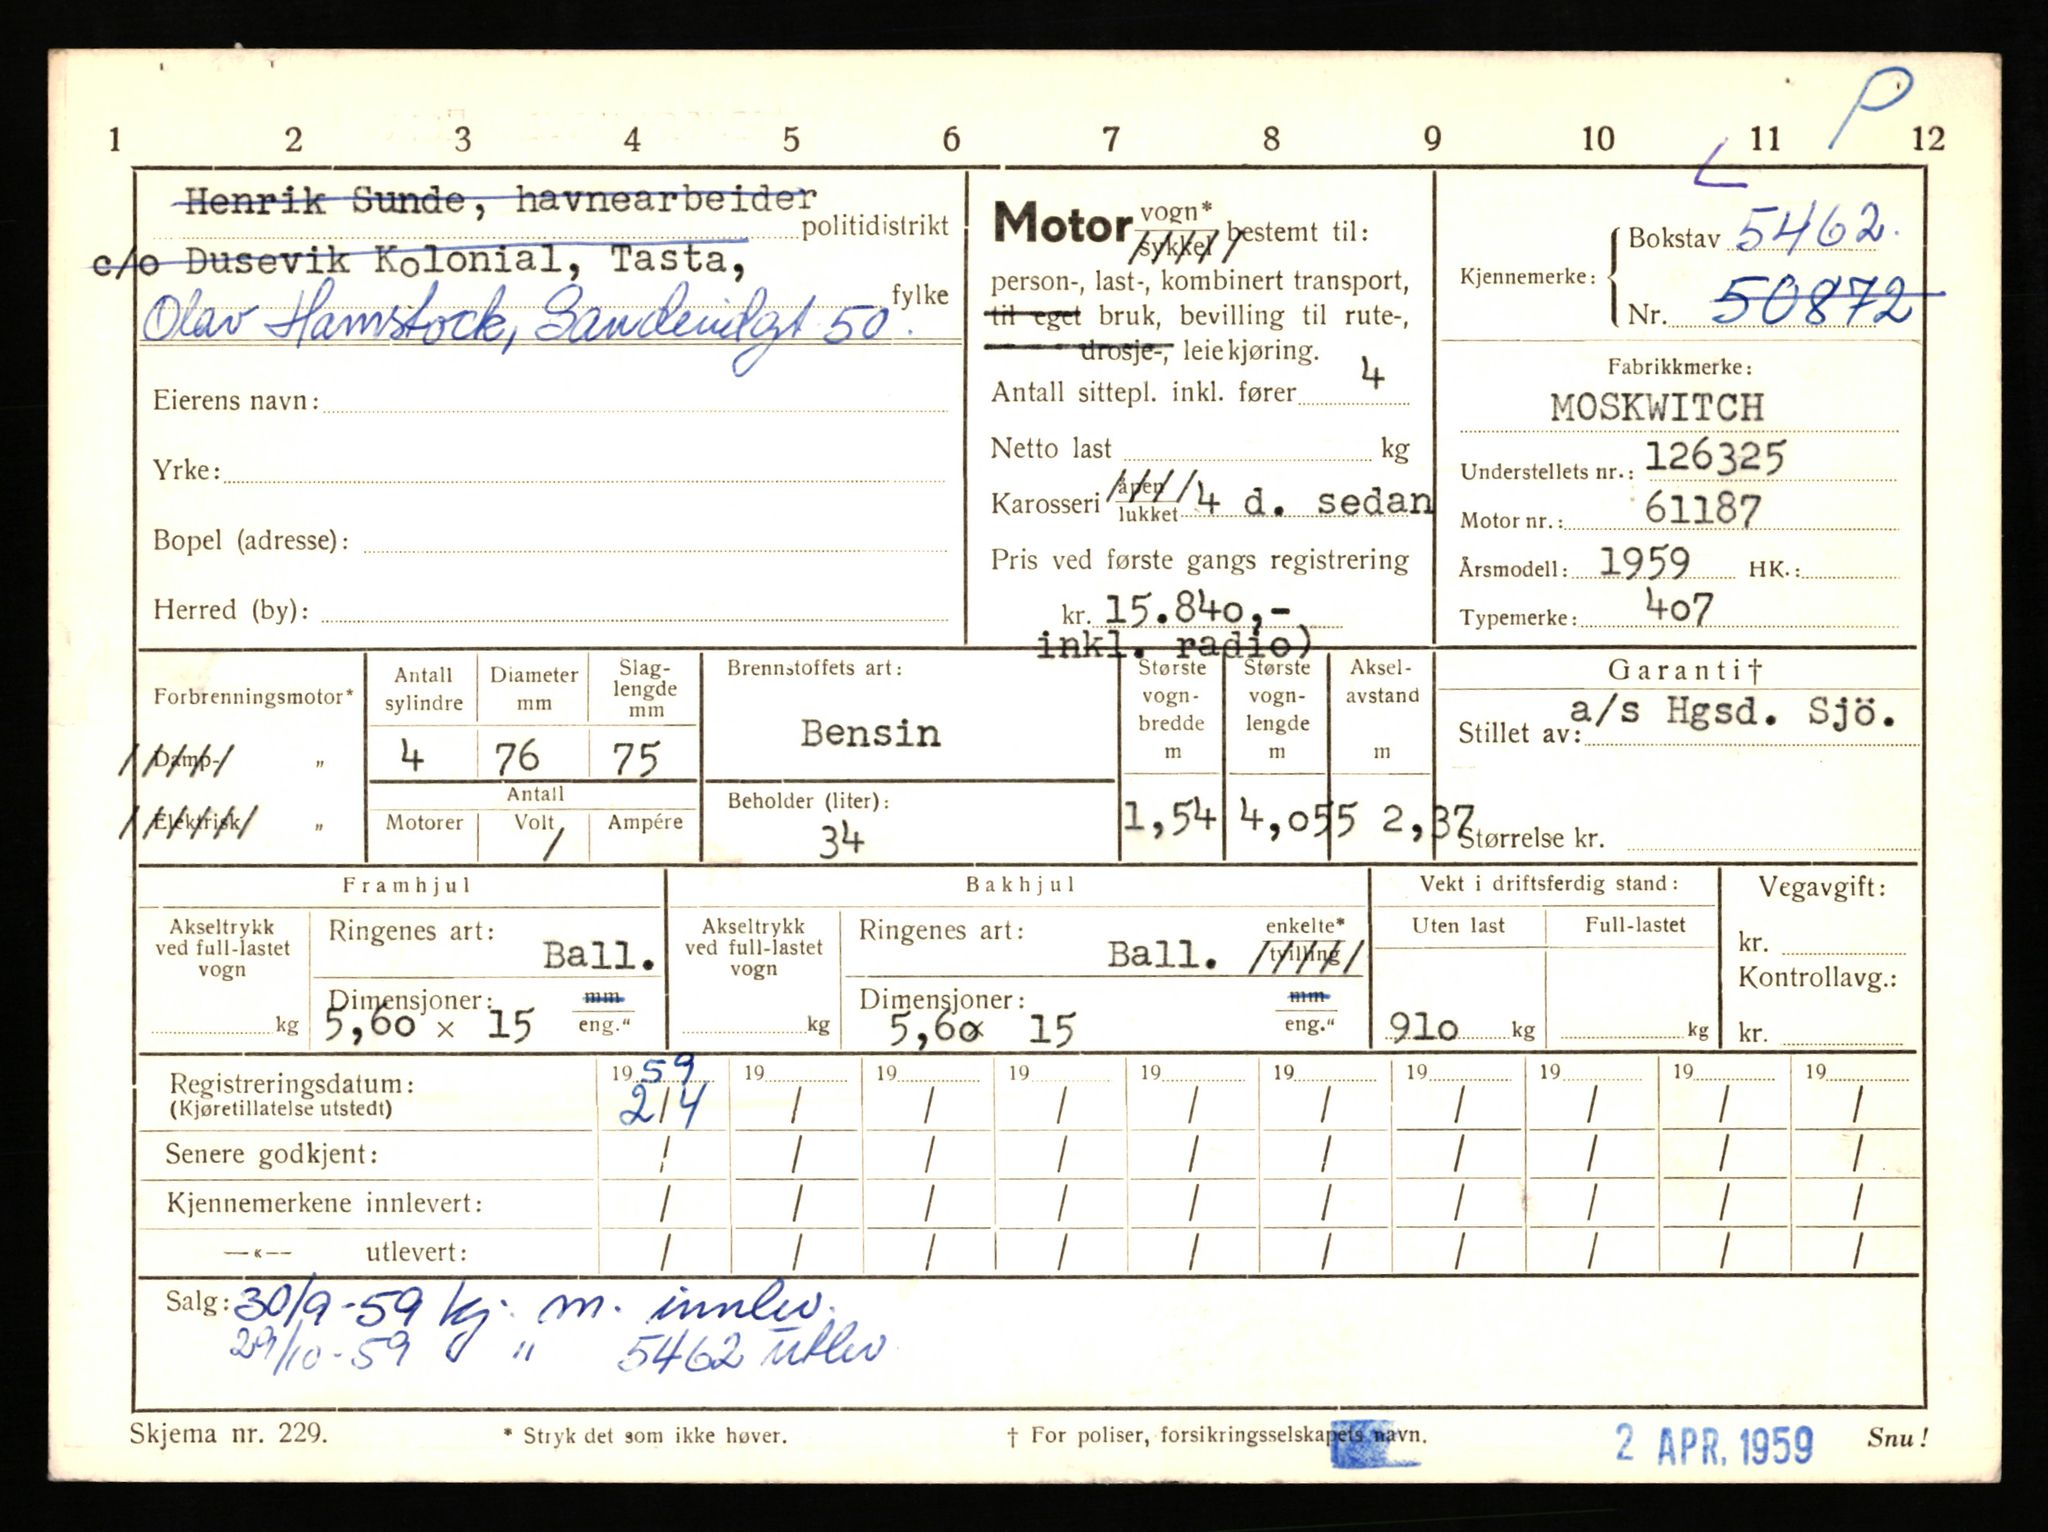 P
1 2 3 4 5 6 7 8 9 10 11 12
Henrik Sunde, havnearbeider
politidistrikt
c/o Dusevik Kolonial, Tasta,
fylke
Olav Hamstock, Sandeidgt 50.
Eierens navn:
Yrke:
Bopel (adresse):
Herred (by):
Motor vogn* sykkel bestemt til:
person-, last-, kombinert transport,
til eget bruk, bevilling til rute-,
drosje-, leiekjøring.
Antall sittepl. inkl. fører 4
Netto last kg
Karosseri åpen lukket 4 d. sedan
Pris ved første gangs registrering
kr. 15.840,-
inkl. radio)
Kjennemerke: { Bokstav 5462.
Nr. 50872
Fabrikkmerke:
MOSKWITCH
Understellets nr.: 126325
Motor nr.: 61187
Årsmodell: 1959 HK.:
Typemerke: 407
Forbrenningsmotor*
Damp- „
Elektrisk „
Antall sylindre
Diameter mm
Slag-lengde mm
4 76 75
Antall
Motorer Volt Ampére
/
Brennstoffets art:
Bensin
Beholder (liter):
34
Største vogn-bredde m
Største vogn-lengde m
Aksel-avstand m
1,54 4,055 2,37
Garanti†
Stillet av: a/s Hgsd. Sjö.
Størrelse kr.
Framhjul
Akseltrykk ved full-lastet vogn
kg
Ringenes art: Ball.
Dimensjoner: mm
5,60 x 15 eng."
Bakhjul
Akseltrykk ved full-lastet vogn
kg
Ringenes art: Ball. enkelte* tvilling
Dimensjoner: mm
5,60x 15 eng."
Vekt i driftsferdig stand:
Uten last Full-lastet
910 kg kg
Vegavgift:
kr.
Kontrollavg.:
kr.
Registreringsdatum: 1959 19 19 19 19 19 19 19 19 19
(Kjøretillatelse utstedt) 2/4 / / / / / / / / /
Senere godkjent: / / / / / / / / / /
Kjennemerkene innlevert: / / / / / / / / / /
—«— utlevert: / / / / / / / / / /
Salg: 30/9-59 kj. m. innlev.
29/10-59 " 5462 utlev
Skjema nr. 229. * Stryk det som ikke høver. † For poliser, forsikringsselskapets navn. 2 APR. 1959 Snu!